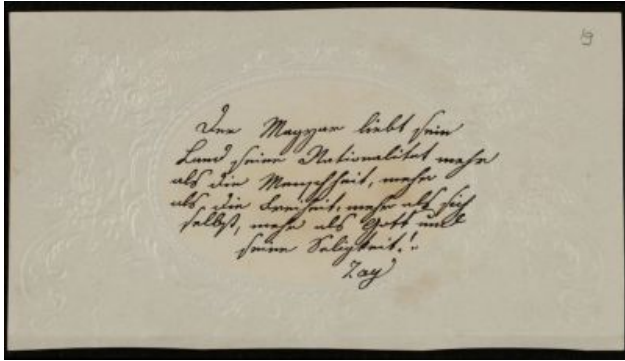 19
Der Magyar liebt sein
Land seine Nationalitet mehr
als die Menschheit, mehr
als die Freiheit, mehr als sich
selbst, mehr als Gott und
seine Seligkeit!"
Zay